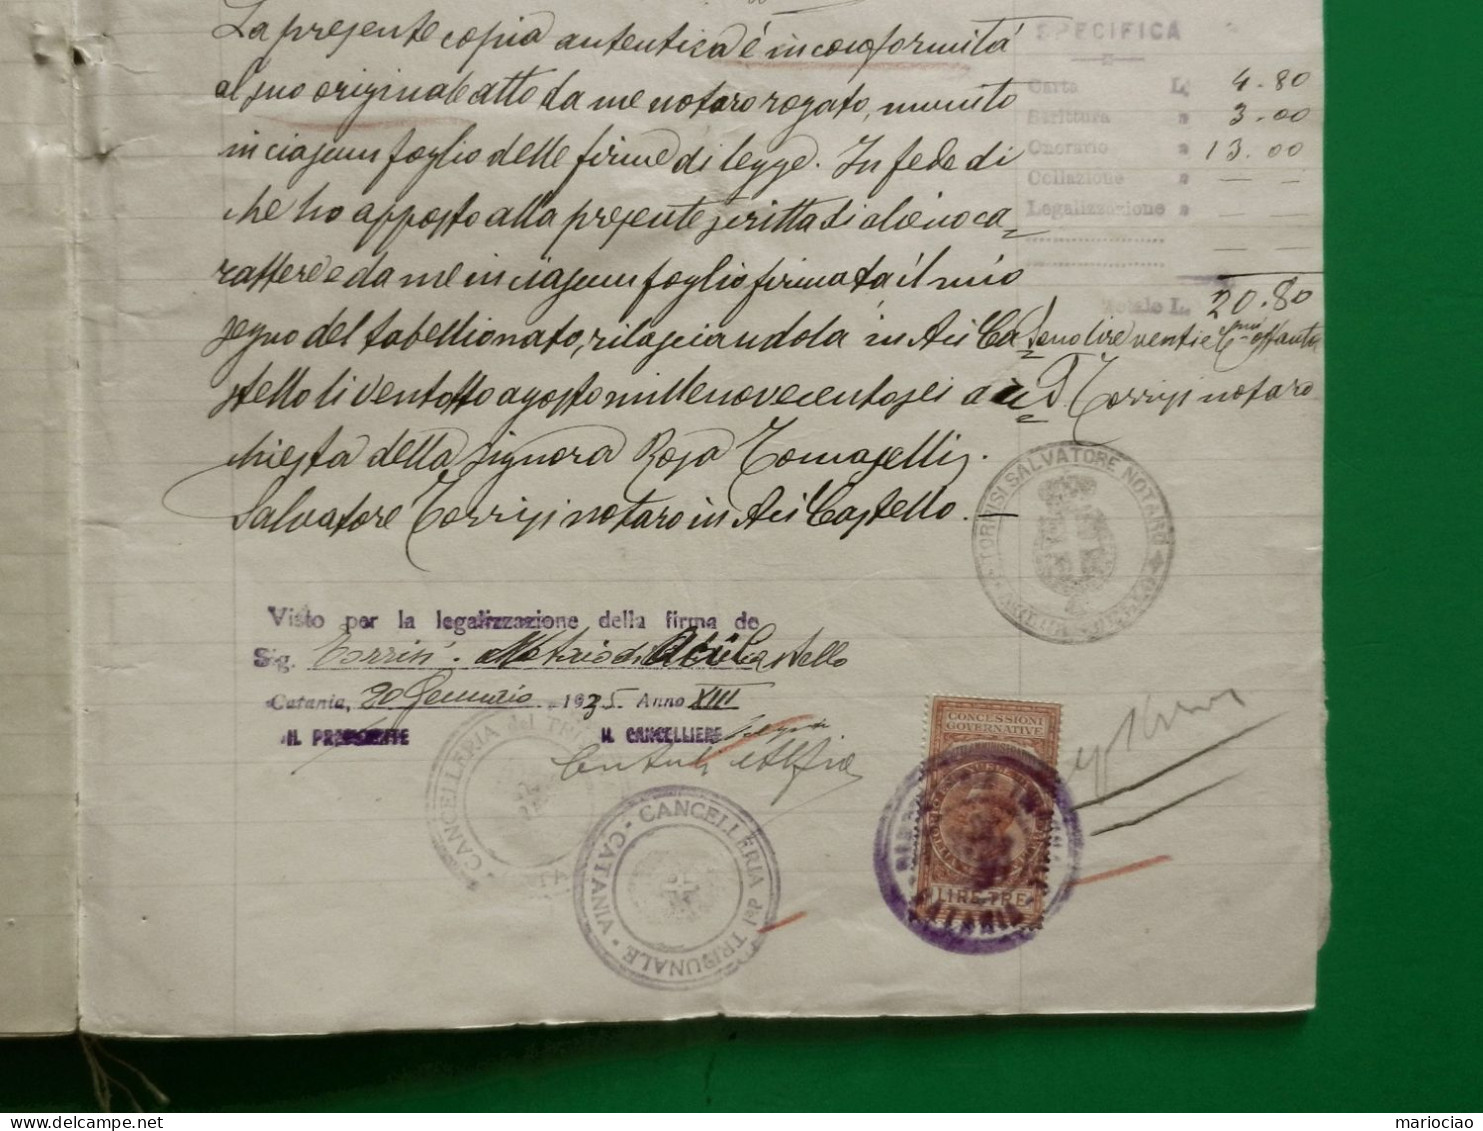 La presente copia autentica è in conformità
al suo originale atto da me notaro rogato, munito
in ciascun foglio delle firme di legge. In fede di
che ho apposto alla presente scritta di alieno ca=
rattere e da me in ciascun foglio firmata il mio
segno del tabellionato, rilasciandola in Aci Ca=
stello li ventotto agosto millenovecentosei a ri=
chiesta della signora Rosa Tomaselli.
Salvatore Torrisi notaro in Aci Castello.
SPECIFICA
Carta L. 4.80
Scrittura " 3.00
Onorario " 13.00
Collazione " — —
Legalizzazione " — —
Totale L. 20.80
Sono lire venti e c.mi ottanta
Torrisi notaro
TORRISI SALVATORE NOTARO
Visto per la legalizzazione della firma de
Sig. Torrisi Notaio di Aci Castello
Catania, 20 Gennaio 1935 Anno XIII
IL CANCELLIERE
CANCELLERIA del TRI
CANCELLERIA del TRIBUNALE · CATANIA
CONCESSIONI
GOVERNATIVE
LIRE TRE
mariociao